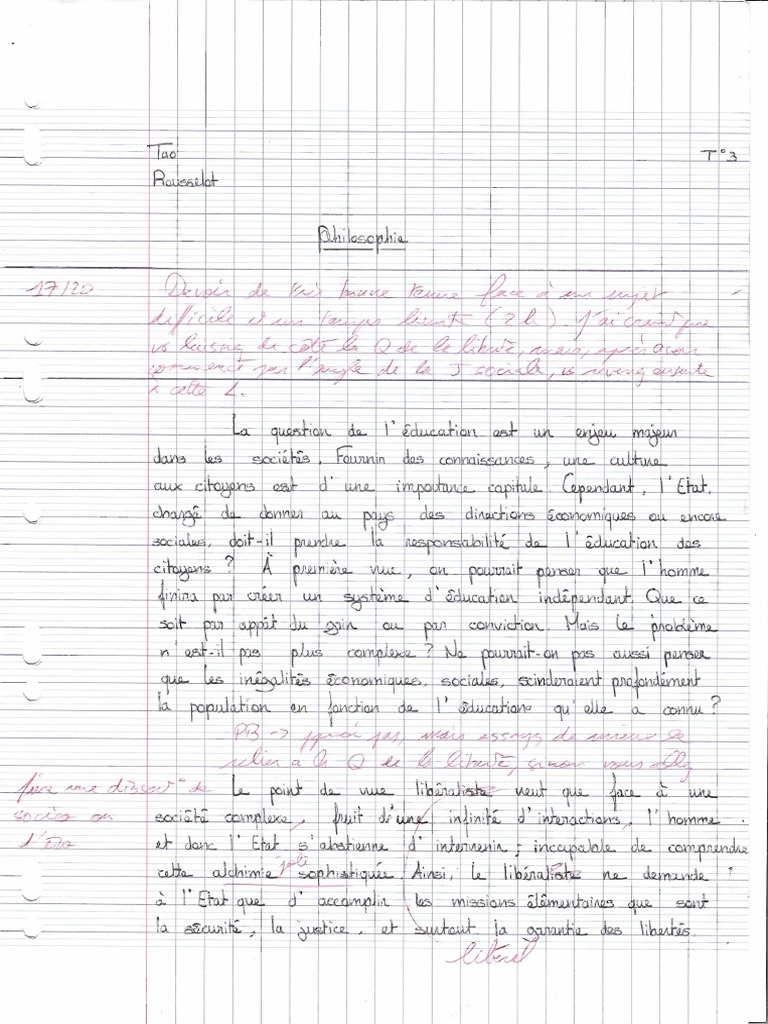 Tao T°3
Rousselot
Philosophie
17/20 Devoir de très bonne tenue face à un sujet
difficile et un temps limité (2h). J'ai craint que
vs laissiez de côté la Q de la liberté, mais, après avoir
commencé par l'angle de la J sociale, vs revenez ensuite
à cette L.
La question de l'éducation est un enjeu majeur
dans les sociétés. Fournir des connaissances, une culture
aux citoyens est d'une importance capitale. Cependant, l'Etat,
chargé de donner au pays des directions économiques ou encore
sociales, doit-il prendre la responsabilité de l'éducation des
citoyens ? À première vue, on pourrait penser que l'homme
finira par créer un système d'éducation indépendant. Que ce
soit par appât du gain ou par conviction. Mais le problème
n'est-il pas plus complexe ? Ne pourrait-on pas aussi penser
que les inégalités économiques, sociales, scinderaient profondément
la population en fonction de l'éducation qu'elle a connu ?
PB -> pas, mais essayez de mieux le
relier à la Q de la liberté, sinon vous allez
faire une dissert° de
socio ou
d'
Le point de vue libéraliste veut que face à une
société complexe, fruit d'une infinité d'interactions, l'homme
et donc l'Etat s'abstienne d'intervenir ; incapable de comprendre
joli
cette alchimie sophistiquée. Ainsi, le libéraliste ne demande
à l'Etat que d'accomplir les missions élémentaires que sont
la sécurité, la justice, et surtout la garantie des libertés.
libéral